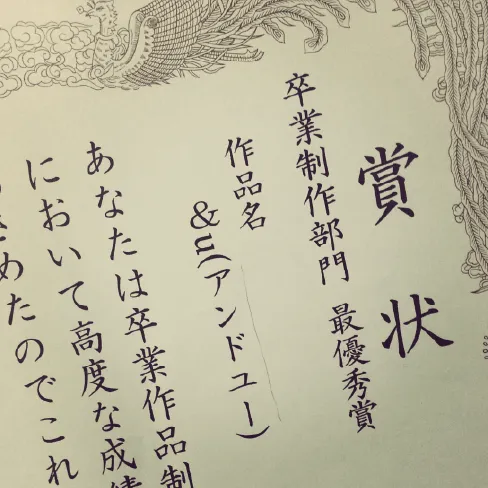 賞状
卒業制作部門 最優秀賞
作品名
&u(アンドユー)
あなたは卒業作品制
において高度な成績
さめたのでこれ